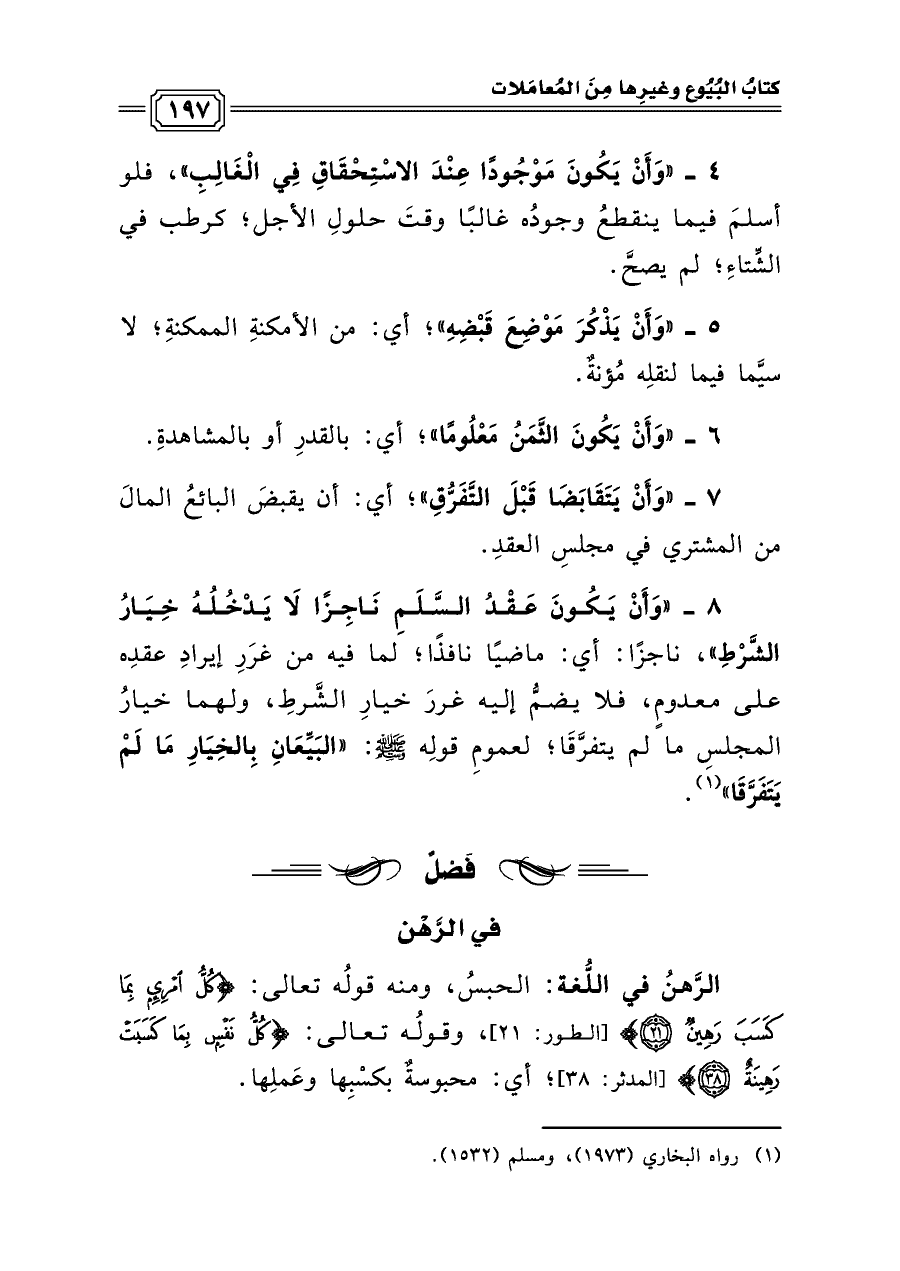 كتابُ البُيُوع وغيرِها مِنَ المُعامَلات
١٩٧
٤ ـ «وَأَنْ يَكُونَ مَوْجُودًا عِنْدَ الاسْتِحْقَاقِ فِي الْغَالِبِ»، فلو
أسلمَ فيما ينقطعُ وجودُه غالبًا وقتَ حلولِ الأجل؛ كرطب في
الشِّتاءِ؛ لم يصحَّ.
٥ ـ «وَأَنْ يَذْكُرَ مَوْضِعَ قَبْضِهِ»؛ أي: من الأمكنةِ الممكنةِ؛ لا
سيَّما فيما لنقلِه مُؤنةٌ.
٦ ـ «وَأَنْ يَكُونَ الثَّمَنُ مَعْلُومًا»؛ أي: بالقدرِ أو بالمشاهدةِ.
٧ ـ «وَأَنْ يَتَقَابَضَا قَبْلَ التَّفَرُّقِ»؛ أي: أن يقبضَ البائعُ المالَ
من المشتري في مجلسِ العقدِ.
٨ ـ «وَأَنْ يَكُونَ عَقْدُ السَّلَمِ نَاجِزًا لَا يَدْخُلُهُ خِيَارُ
الشَّرْطِ»، ناجزًا: أي: ماضيًا نافذًا؛ لما فيه من غرَرِ إيرادِ عقدِه
على معدومٍ، فلا يضمُّ إليه غررَ خيارِ الشَّرطِ، ولهما خيارُ
المجلسِ ما لم يتفرَّقَا؛ لعمومِ قولِه ﷺ: «البَيِّعَانِ بِالخِيَارِ مَا لَمْ
يَتَفَرَّقَا»(١).
فَصْلٌ
في الرَّهْن
الرَّهنُ في اللُّغة: الحبسُ، ومنه قولُه تعالى: ﴿كُلُّ ٱمْرِيِٕ بِمَا
كَسَبَ رَهِينٌ ٢١﴾ [الطور: ٢١]، وقولُه تعالى: ﴿كُلُّ نَفْسٍ بِمَا كَسَبَتْ
رَهِينَةٌ ٣٨﴾ [المدثر: ٣٨]؛ أي: محبوسةٌ بكسْبِها وعَملِها.
(١) رواه البخاري (١٩٧٣)، ومسلم (١٥٣٢).